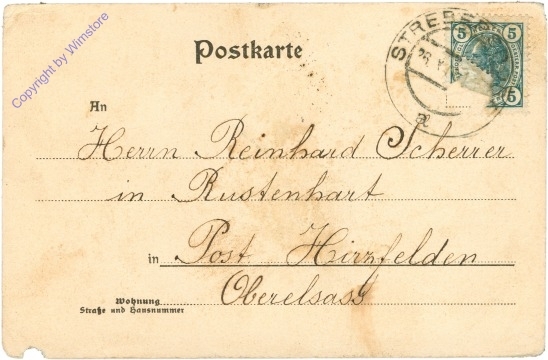 Copyright by Wimstore
Postkarte
5 5
5
An
Herrn Reinhard Scherrer
in Rustenhart
in Post Hirzfelden
Oberelsass
Wohnung
Straße und Hausnummer